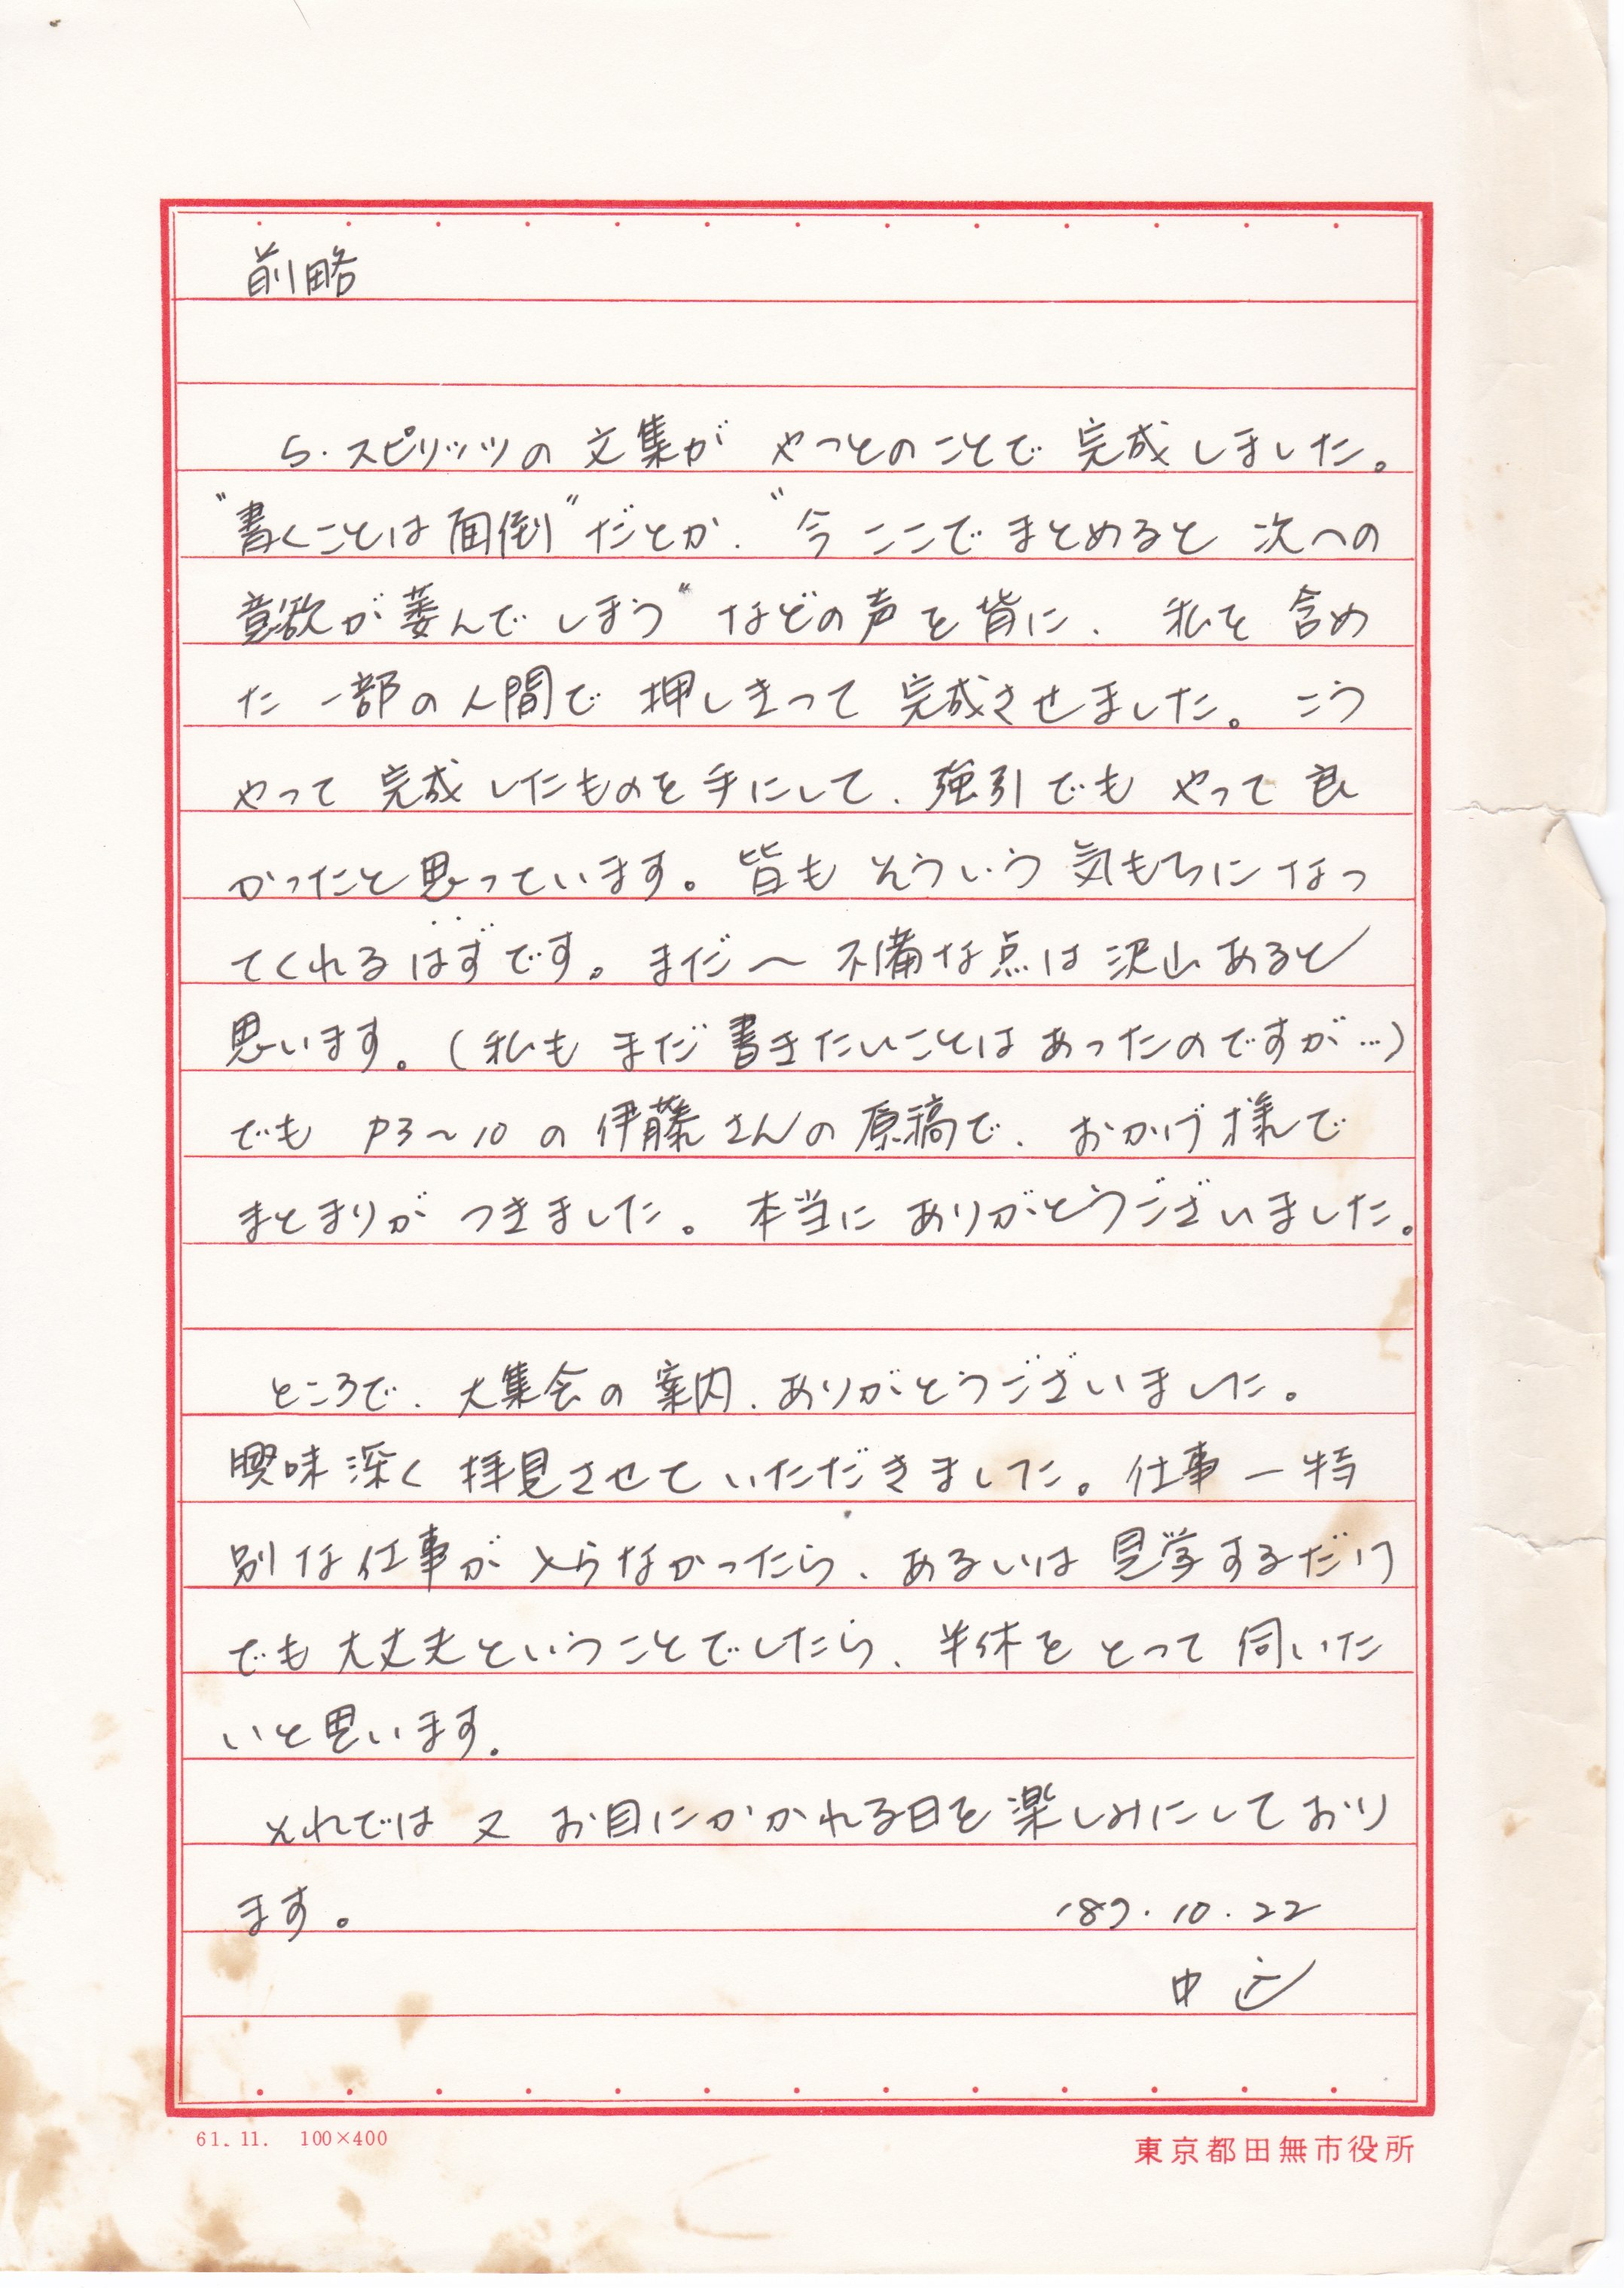 前略
S.スピリッツの文集が やっとのことで 完成しました。
"書くことは面倒"だとか、"今ここで まとめると 次への
意欲が萎んでしまう"などの声を背に、私を含め
た 一部の人間で 押しきって 完成させました。こう
やって 完成したものを手にして、強引でも やって良
かったと思っています。皆も そういう 気もちになっ
てくれるはずです。まだ〜 不備な点は沢山あると
思います。(私も まだ書きたいことは あったのですが…)
でも P3〜10 の 伊藤さんの原稿で、おかげ様で
まとまりが つきました。本当に ありがとうございました。
ところで、大集会の案内、ありがとうございました。
興味深く 拝見させていただきました。仕事 ー特
別な仕事が入らなかったら、あるいは 見学するだけ
でも大丈夫ということでしたら、半休を とって 伺いた
いと思います。
それでは 又 お目にかかれる日を楽しみにしており
ます。 '89.10.22
中
61.11. 100×400 東京都田無市役所